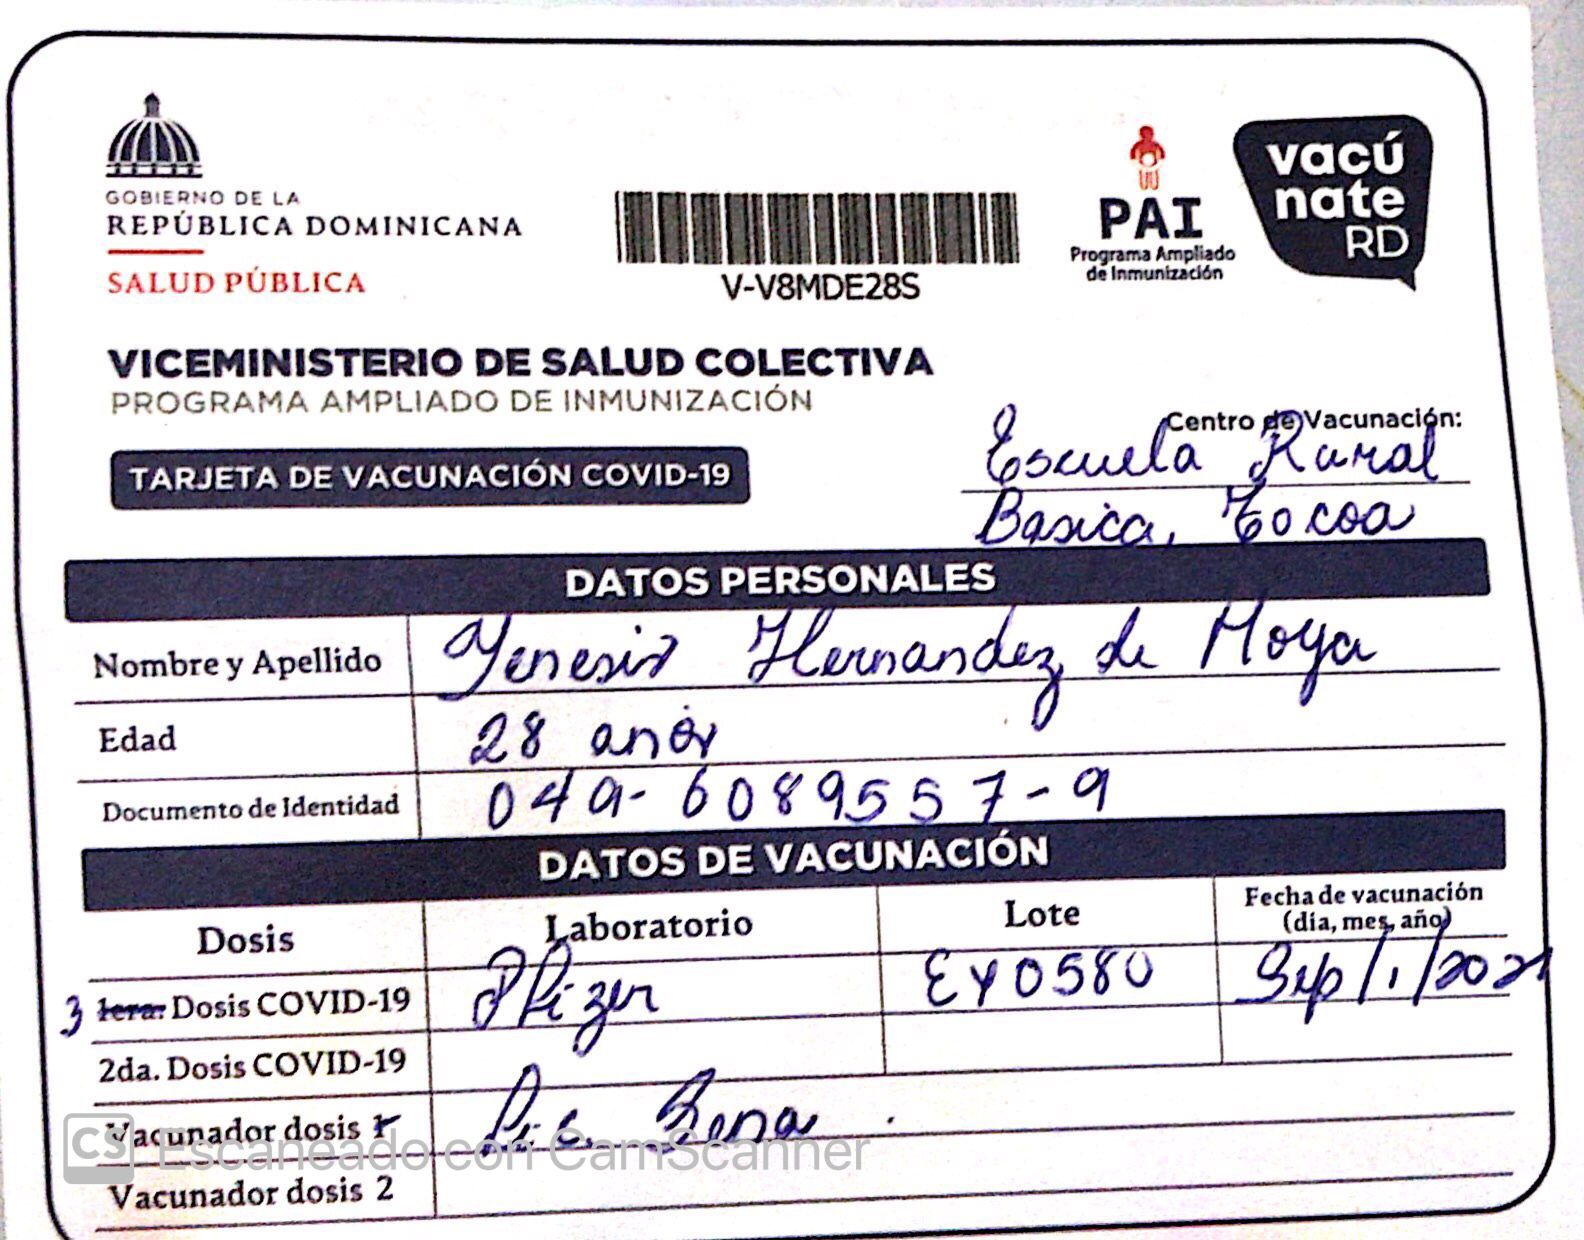 GOBIERNO DE LA
REPÚBLICA DOMINICANA
SALUD PÚBLICA
V-V8MDE28S
PAI
Programa Ampliado
de Inmunización
vacú
nate
RD
VICEMINISTERIO DE SALUD COLECTIVA
PROGRAMA AMPLIADO DE INMUNIZACIÓN
Centro de Vacunación:
Escuela Rural
Basica, Tocoa
TARJETA DE VACUNACIÓN COVID-19
DATOS PERSONALES
Nombre y Apellido Yenesis Hernandez de Moya
Edad 28 años
Documento de Identidad 049-6089557-9
DATOS DE VACUNACIÓN
Dosis Laboratorio Lote Fecha de vacunación
(día, mes, año)
3 1era. Dosis COVID-19 Pfizer EY0580 Sep/1/2021
2da. Dosis COVID-19
Vacunador dosis 1 Lic.
Vacunador dosis 2
CS Escaneado con CamScanner